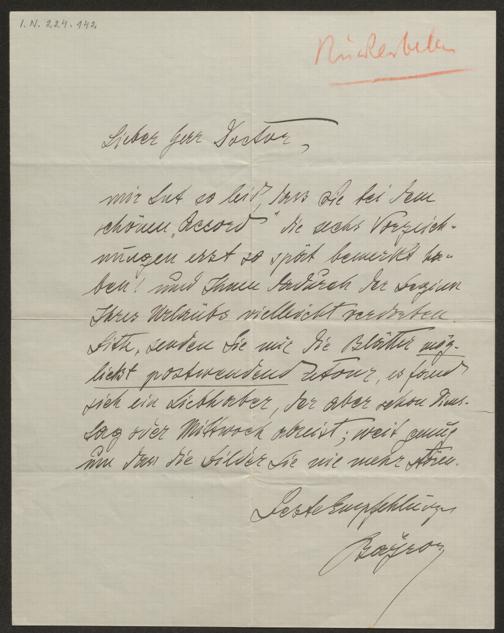 I. N. 224.142
Rückerbeten
Lieber Herr Doctor,
mir tut so leid, dass Sie bei dem
schönen "Accord" die sechs Vorzeich-
nungen erst so spät bemerkt ha-
ben! und Ihnen dadurch der Beginn
Ihres Urlaubs vielleicht verdorben.
Bitte, senden Sie mir die Blätter mög-
lichst postwendend retour, es fand
sich ein Liebhaber, der aber schon Diens-
tag oder Mittwoch abreist; weit genug
um dass die Bilder Sie nie mehr stören.
Beste Empfehlung